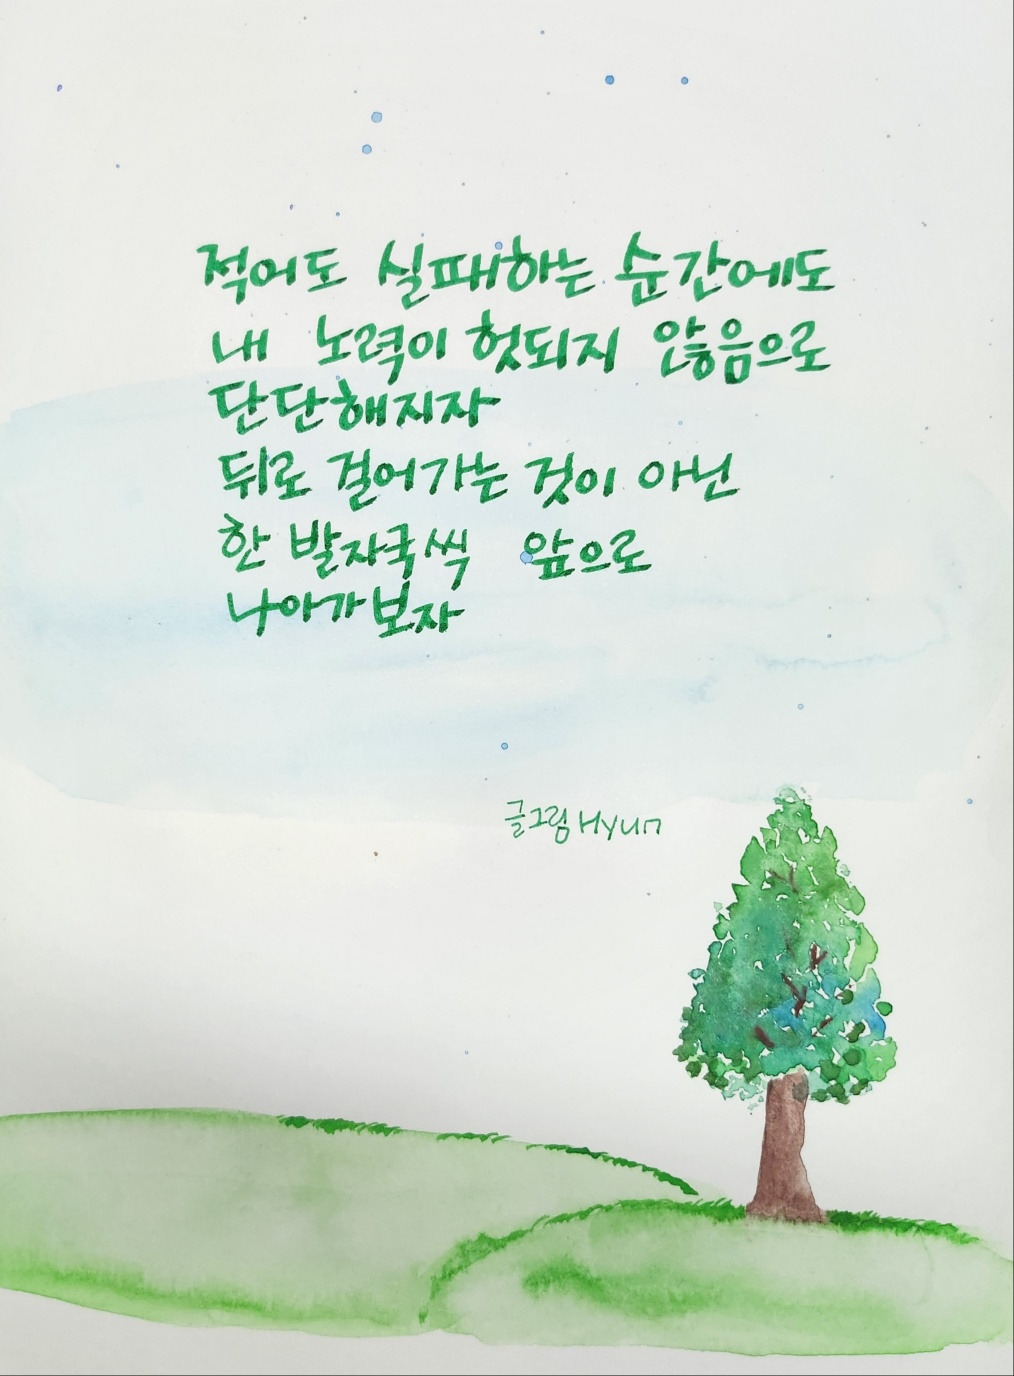 적어도 실패하는 순간에도
내 노력이 헛되지 않음으로
단단해지자
뒤로 걸어가는 것이 아닌
한 발자국씩 앞으로
나아가보자
글그림 Hyun